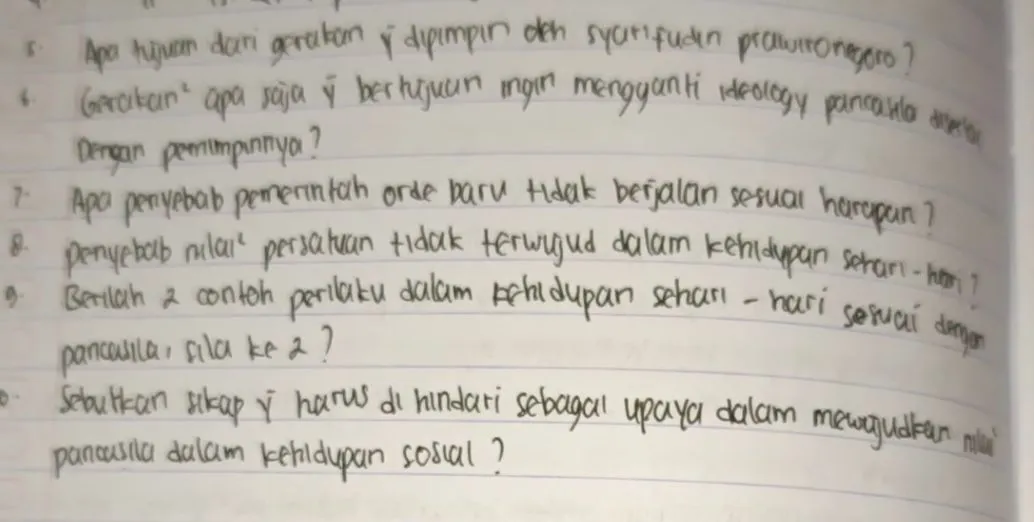 5. Apa tujuan dari gerakan ÿ dipimpin oleh syarifudin prawironegoro?
6. Gerakan² apa saja ÿ bertujuan ingin mengganti ideology pancasila disertai
Dengan pemimpinnya?
7. Apa penyebab pemerintah orde baru tidak berjalan sesuai harapan?
8. penyebab nilai² persatuan tidak terwujud dalam kehidupan sehari-hari?
9. Berilah 2 contoh perilaku dalam kehidupan sehari-hari sesuai dengan
pancasila, sila ke 2?
0. Sebutkan sikap ÿ harus di hindari sebagai upaya dalam mewujudkan nilai
pancasila dalam kehidupan sosial?